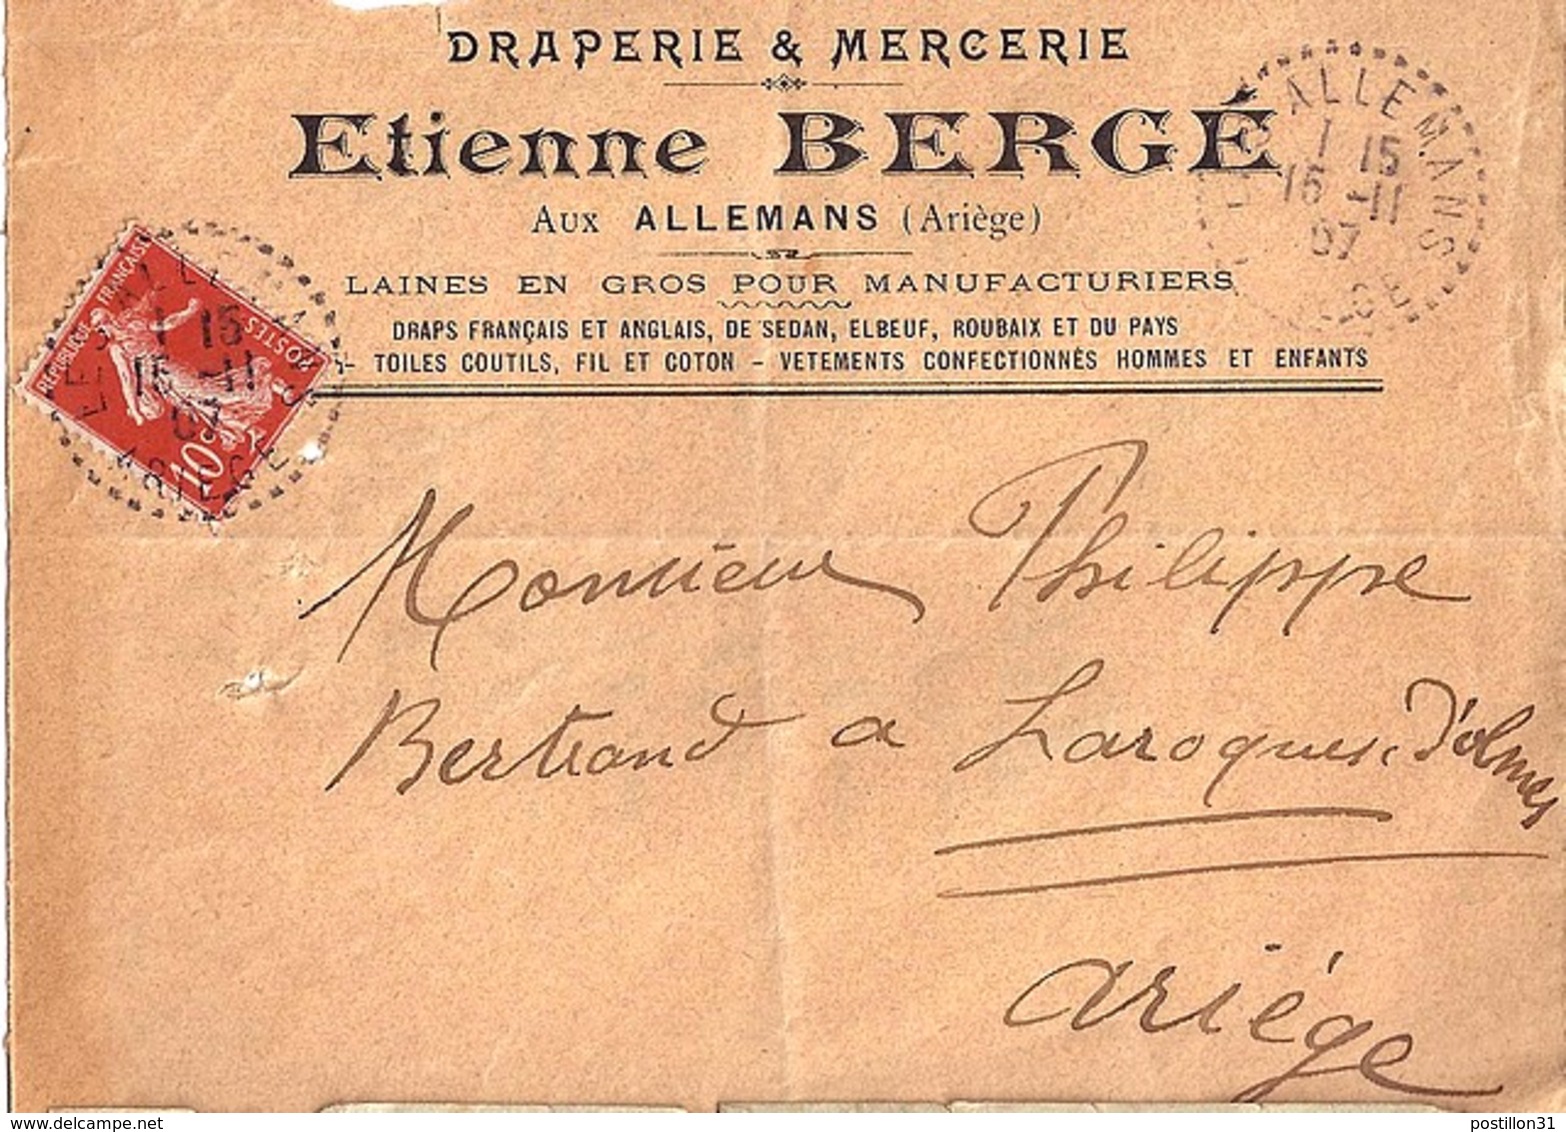 DRAPERIE & MERCERIE
Etienne BERGÉ
Aux ALLEMANS (Ariège)
LAINES EN GROS POUR MANUFACTURIERS
DRAPS FRANÇAIS ET ANGLAIS, DE SEDAN, ELBEUF, ROUBAIX ET DU PAYS
TOILES COUTILS, FIL ET COTON – VETEMENTS CONFECTIONNÉS HOMMES ET ENFANTS
ALLEMANS
1 15
15 -11
07
REPUBLIQUE FRANÇAISE
POSTES
10c
LES ALLEMANS
1 15
15 -11
07
ARIEGE
Monsieur Philippe
Bertrand a Laroques, d'olmes
Ariége
www.delcampe.net
postillon31